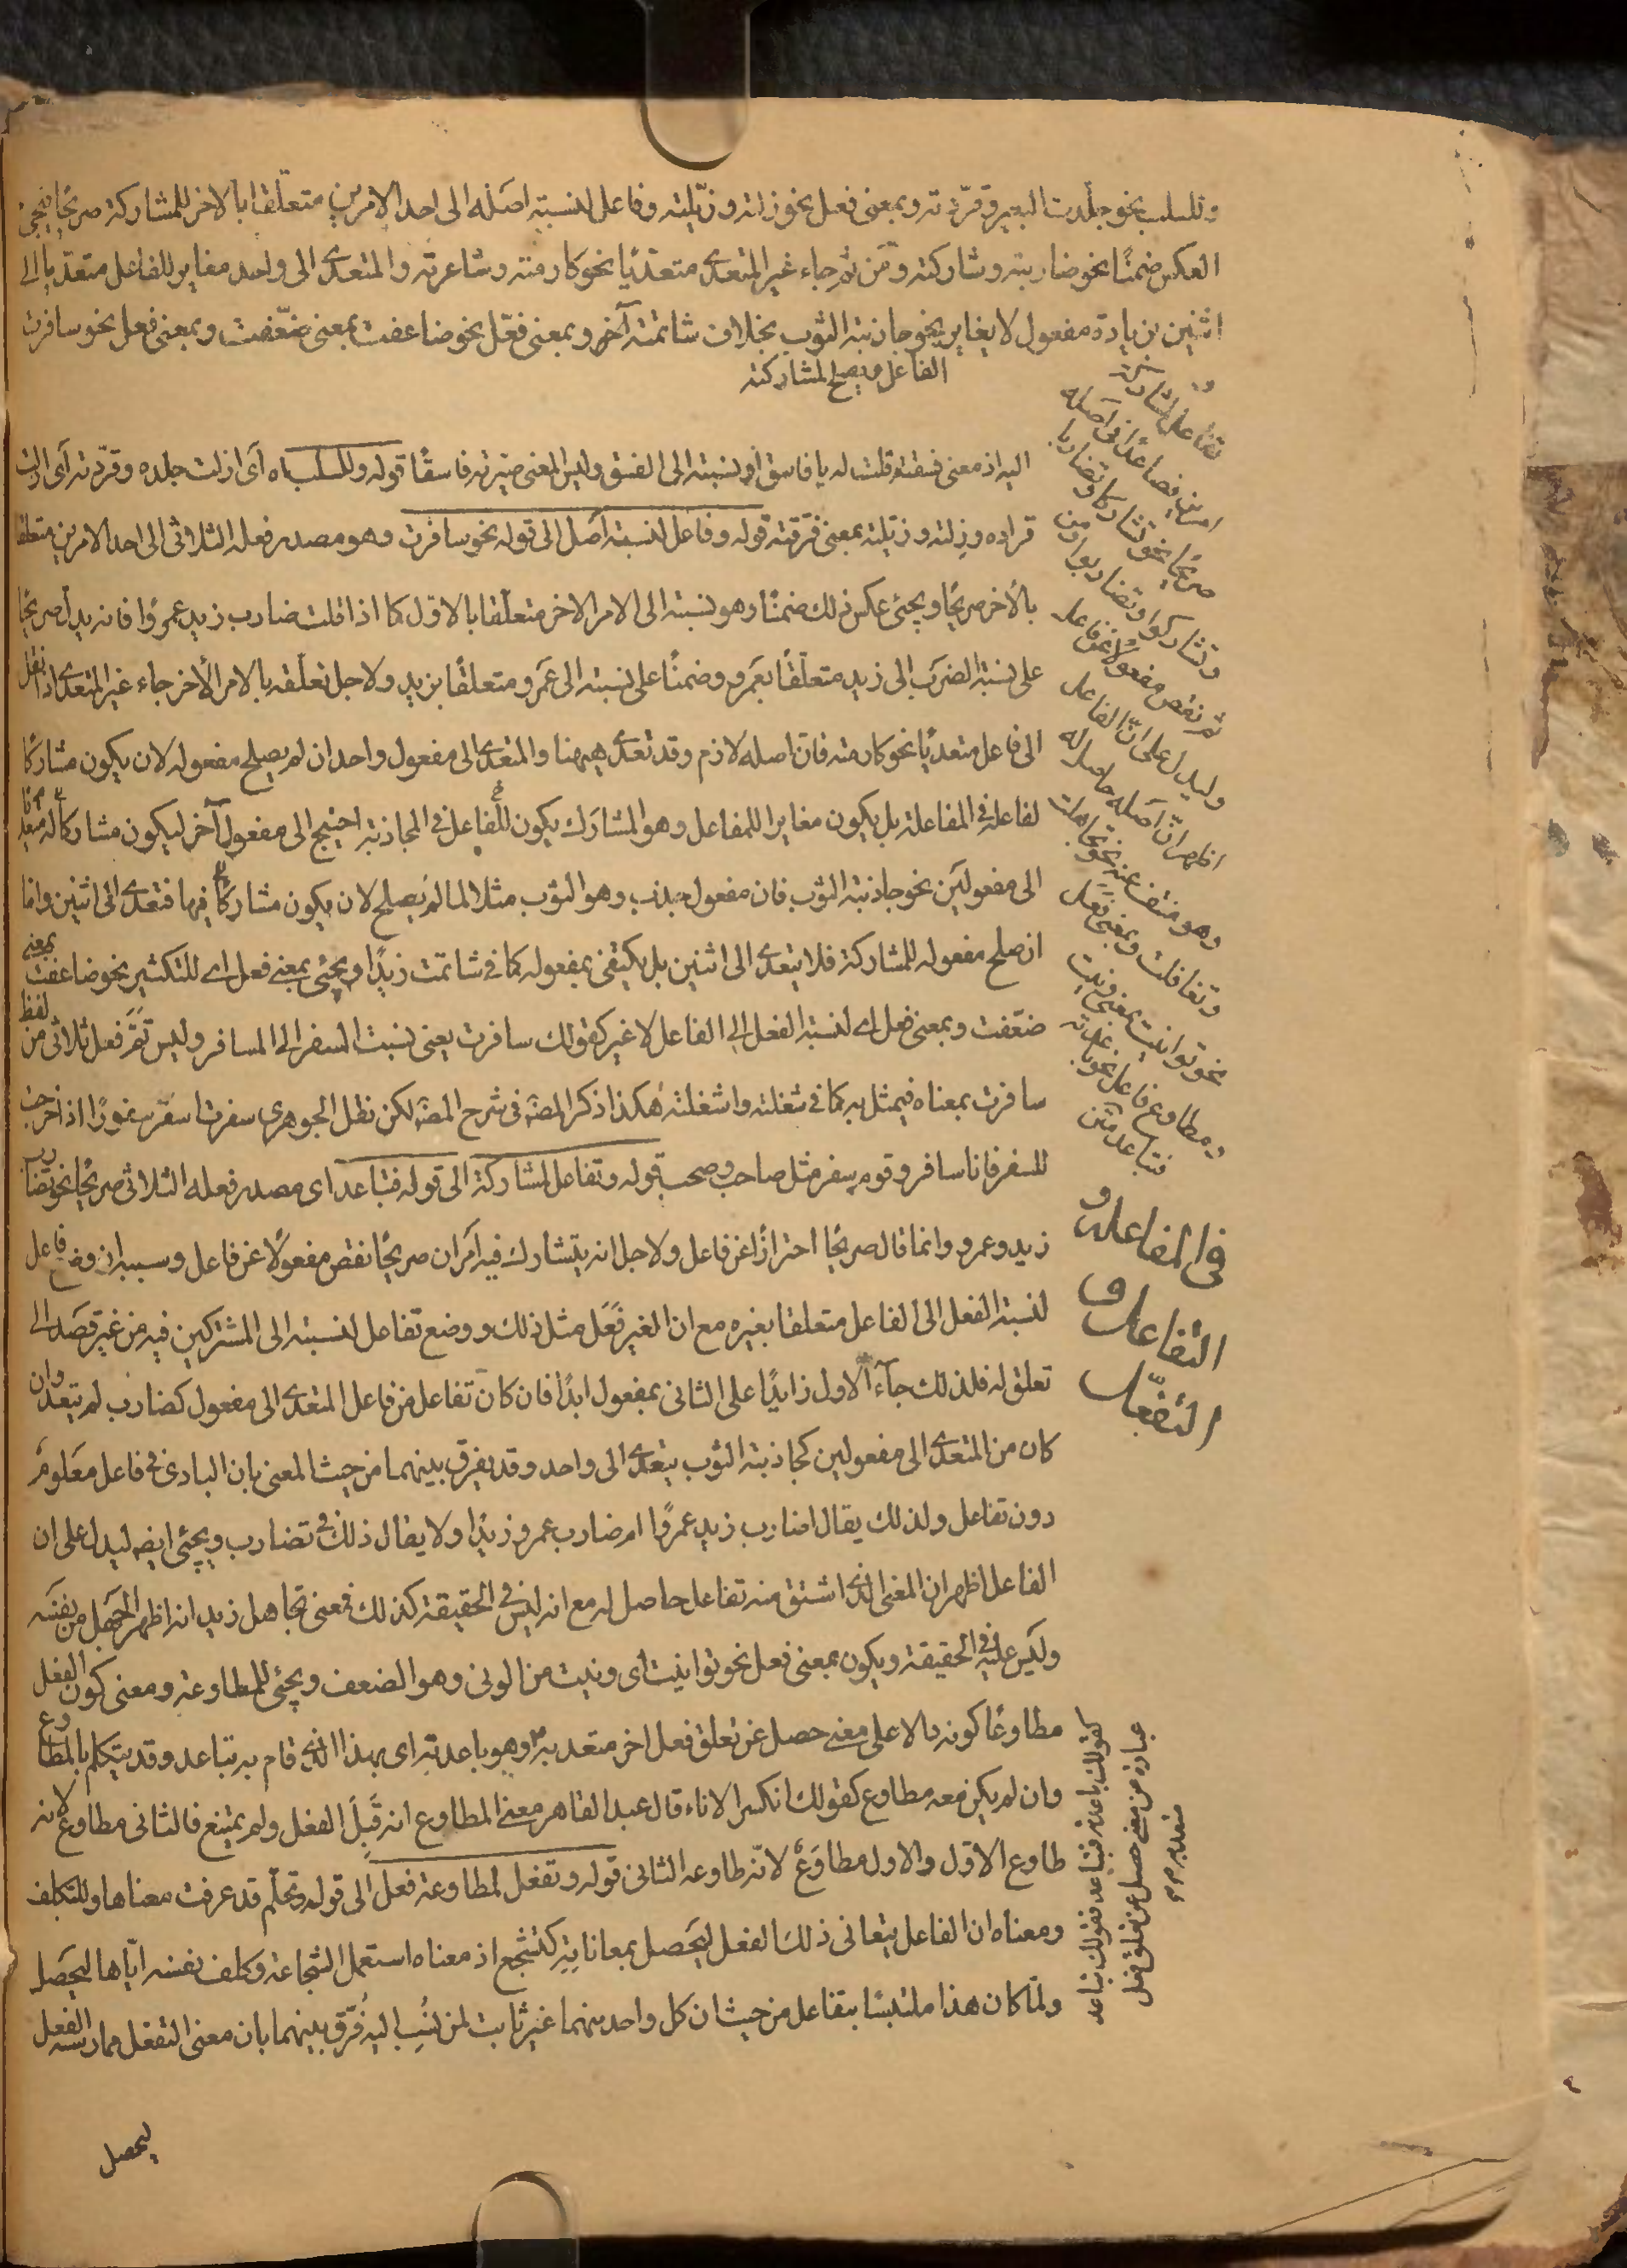 وللسلب نحو جلّدت البعير وقرّدته وبمعنى فعل نحو زلته وزيّلته وفاعل لنسبة اصله الى احد الامرين متعلّقا بالاخر للمشاركة صريحًا فيجئ
العكس ضمنًا نحو ضاربته وشاركته ومن ثم جاء غير المتعدى متعدّيًا نحو كارمته وشاعرته والمتعدى الى واحد مغاير للفاعل متعدّيا الى
اثنين بزيادة مفعول لا يغاير نحو جاذبته الثوب بخلاف شاتمته آخر وبمعنى فعّل نحو ضاعفت بمعنى ضعّفت وبمعنى فعل نحو سافرت
الفاعل ويصلح لمشاركته
وتفاعل لمشاركة
امرين فصاعدًا فى اصله
صريحًا نحو تشاركا وتضاربا
وتشاركوا وتضاربوا ومن
ثم نقص مفعولا عن فاعل
وليدل على انّ الفاعل
اظهر انّ اصله حاصل له
وهو منتف عنه نحو تجاهلت
وتغافلت وبمعنى فعل
نحو توانيت بمعنى ونيت
ومطاوع فاعل نحو باعدته
فتباعد متن
اليه اذ معنى فسقته قلت له يا فاسق او نسبته الى الفسق وليس المعنى صيّرته فاسقًا قوله وللسلب اه اى ازلت جلده وقرّدته اى ازلت
قراده وزلته وزيّلته بمعنى فرّقته قوله وفاعل لنسبة اصل الى قوله نحو سافرت وهو مصدر فعله الثلاثى الى احد الامرين متعلقا
بالأخر صريحًا ويجئ عكس ذلك ضمنًا وهو نسبته الى الامر الاخر متعلّقا بالاوّل كما اذا قلت ضارب زيد عمروًا فانه يدل صريحًا
على نسبة الضرب الى زيد متعلّقًا بعمرو وضمنًا على نسبته الى عمرو متعلقًا بزيد ولاجل تعلّقه بالامر الأخر جاء غير المتعدى اذا نقل
الى فاعل متعديًا نحو كارمته فان اصله لازم وقد تعدى ههنا والمتعدى الى مفعول واحد ان لم يصلح مفعوله لان يكون مشاركًا
لفاعله فى المفاعلة بل يكون مغايرا للمفاعل وهو المشارك يكون للفاعل فى المجاذبة احتيج الى مفعول آخر ليكون مشاركًا له فيتعدى
الى مفعولين نحو جاذبته الثوب فان مفعول جذب وهو الثوب مثلا لما لم يصلح لان يكون مشاركًا فيها فتعدى الى اثنين واما
ان صلح مفعوله للمشاركة فلا يتعدى الى اثنين بل يكتفى بمفعوله كما فى شاتمت زيدًا ويجئ بمعنى فعل اى للتكثير نحو ضاعفت بمعنى
ضعّفت وبمعنى فعل اى لنسبة الفعل الى الفاعل لا غير كقولك سافرت يعنى نسبت السفر الى المسافر وليس ثمّ فعل ثلاثى من لفظ
سافرت بمعناه فيمثل به كما فى شغلته واشغلته هكذا ذكر المصـ فى شرح المفصـ لكن نقل الجوهرى سفرت اسفر سفورًا اذا خرجت
للسفر فانا سافر وقوم سفر مثل صاحب وصحب قوله وتفاعل لمشاركة الى قوله فتباعد اى مصدر فعله الثلاثى صريحًا نحو تضارب
زيد وعمرو وانما قال صريحًا احترازًا عن فاعل ولاجل انه يتشارك فيه امران صريحًا نقص مفعولًا عن فاعل وسببه ان وضع فاعل
لنسبة الفعل الى الفاعل متعلقا بغيره مع ان الغير فعل مثل ذلك ووضع تفاعل لنسبته الى المشتركين فيه من غير قصد الى
تعلق له فلذلك جاء الاول زايدًا على الثانى بمفعول ابدًا فان كان تفاعل من فاعل المتعدى الى مفعول كضارب لم يتعد وان
كان من المتعدى الى مفعولين كجاذبته الثوب يتعدى الى واحد وقد يفرق بينهما من حيث المعنى بان البادى فى فاعل معلوم
دون تفاعل ولذلك يقال اضارب زيد عمرًوا ام ضارب عمرو زيدًا ولا يقال ذلك فى تضارب ويجئ ايضـ ليدل على ان
الفاعل اظهر ان المعنى الذى اشتق منه تفاعل حاصل له مع انه ليس فى الحقيقة كذلك فمعنى تجاهل زيد انه اظهر الجهل من نفسه
وليس عليه فى الحقيقة ويكون بمعنى فعل نحو توانيت اى ونيت من الونى وهو الضعف ويجئ للمطاوعة ومعنى كون الفعل
مطاوعًا كونه دالا على معنى حصل عن تعلق فعل اخر متعد به وهو باعدته اى بهذا الذى قام به تباعد وقد يتكلم بالمطاوع
وان لم يكن معه مطاوع كقولك انكسر الاناء قال عبد القاهر معنى المطاوع انه قبل الفعل ولم يمتنع فالثانى مطاوع لانه
طاوع الاوّل والاول مطاوَعٌ لانّه طاوعه الثانى قوله وتفعل لمطاوعة فعل الى قوله وتحلّم قد عرفت معناها وللتكلف
ومعناه ان الفاعل يتعانى ذلك الفعل ليحصل بمعاناته كتشجع اذ معناه استعمل الشجاعة وكلف نفسه ايّاها ليحصل
ولمّا كان هذا ملتبسًا بتفاعل من حيث ان كل واحد منهما غير ثابت لمن نُسِب اليه فُرّق بينهما بان معنى التفعل ممارسة الفعل
فى المفاعلة و
التفاعل و
التفعّل
كقولك باعدته فتباعد فقولك تباعد
عبارة عن معنى حصل عن تعلق فعل
متعد
ليحصل